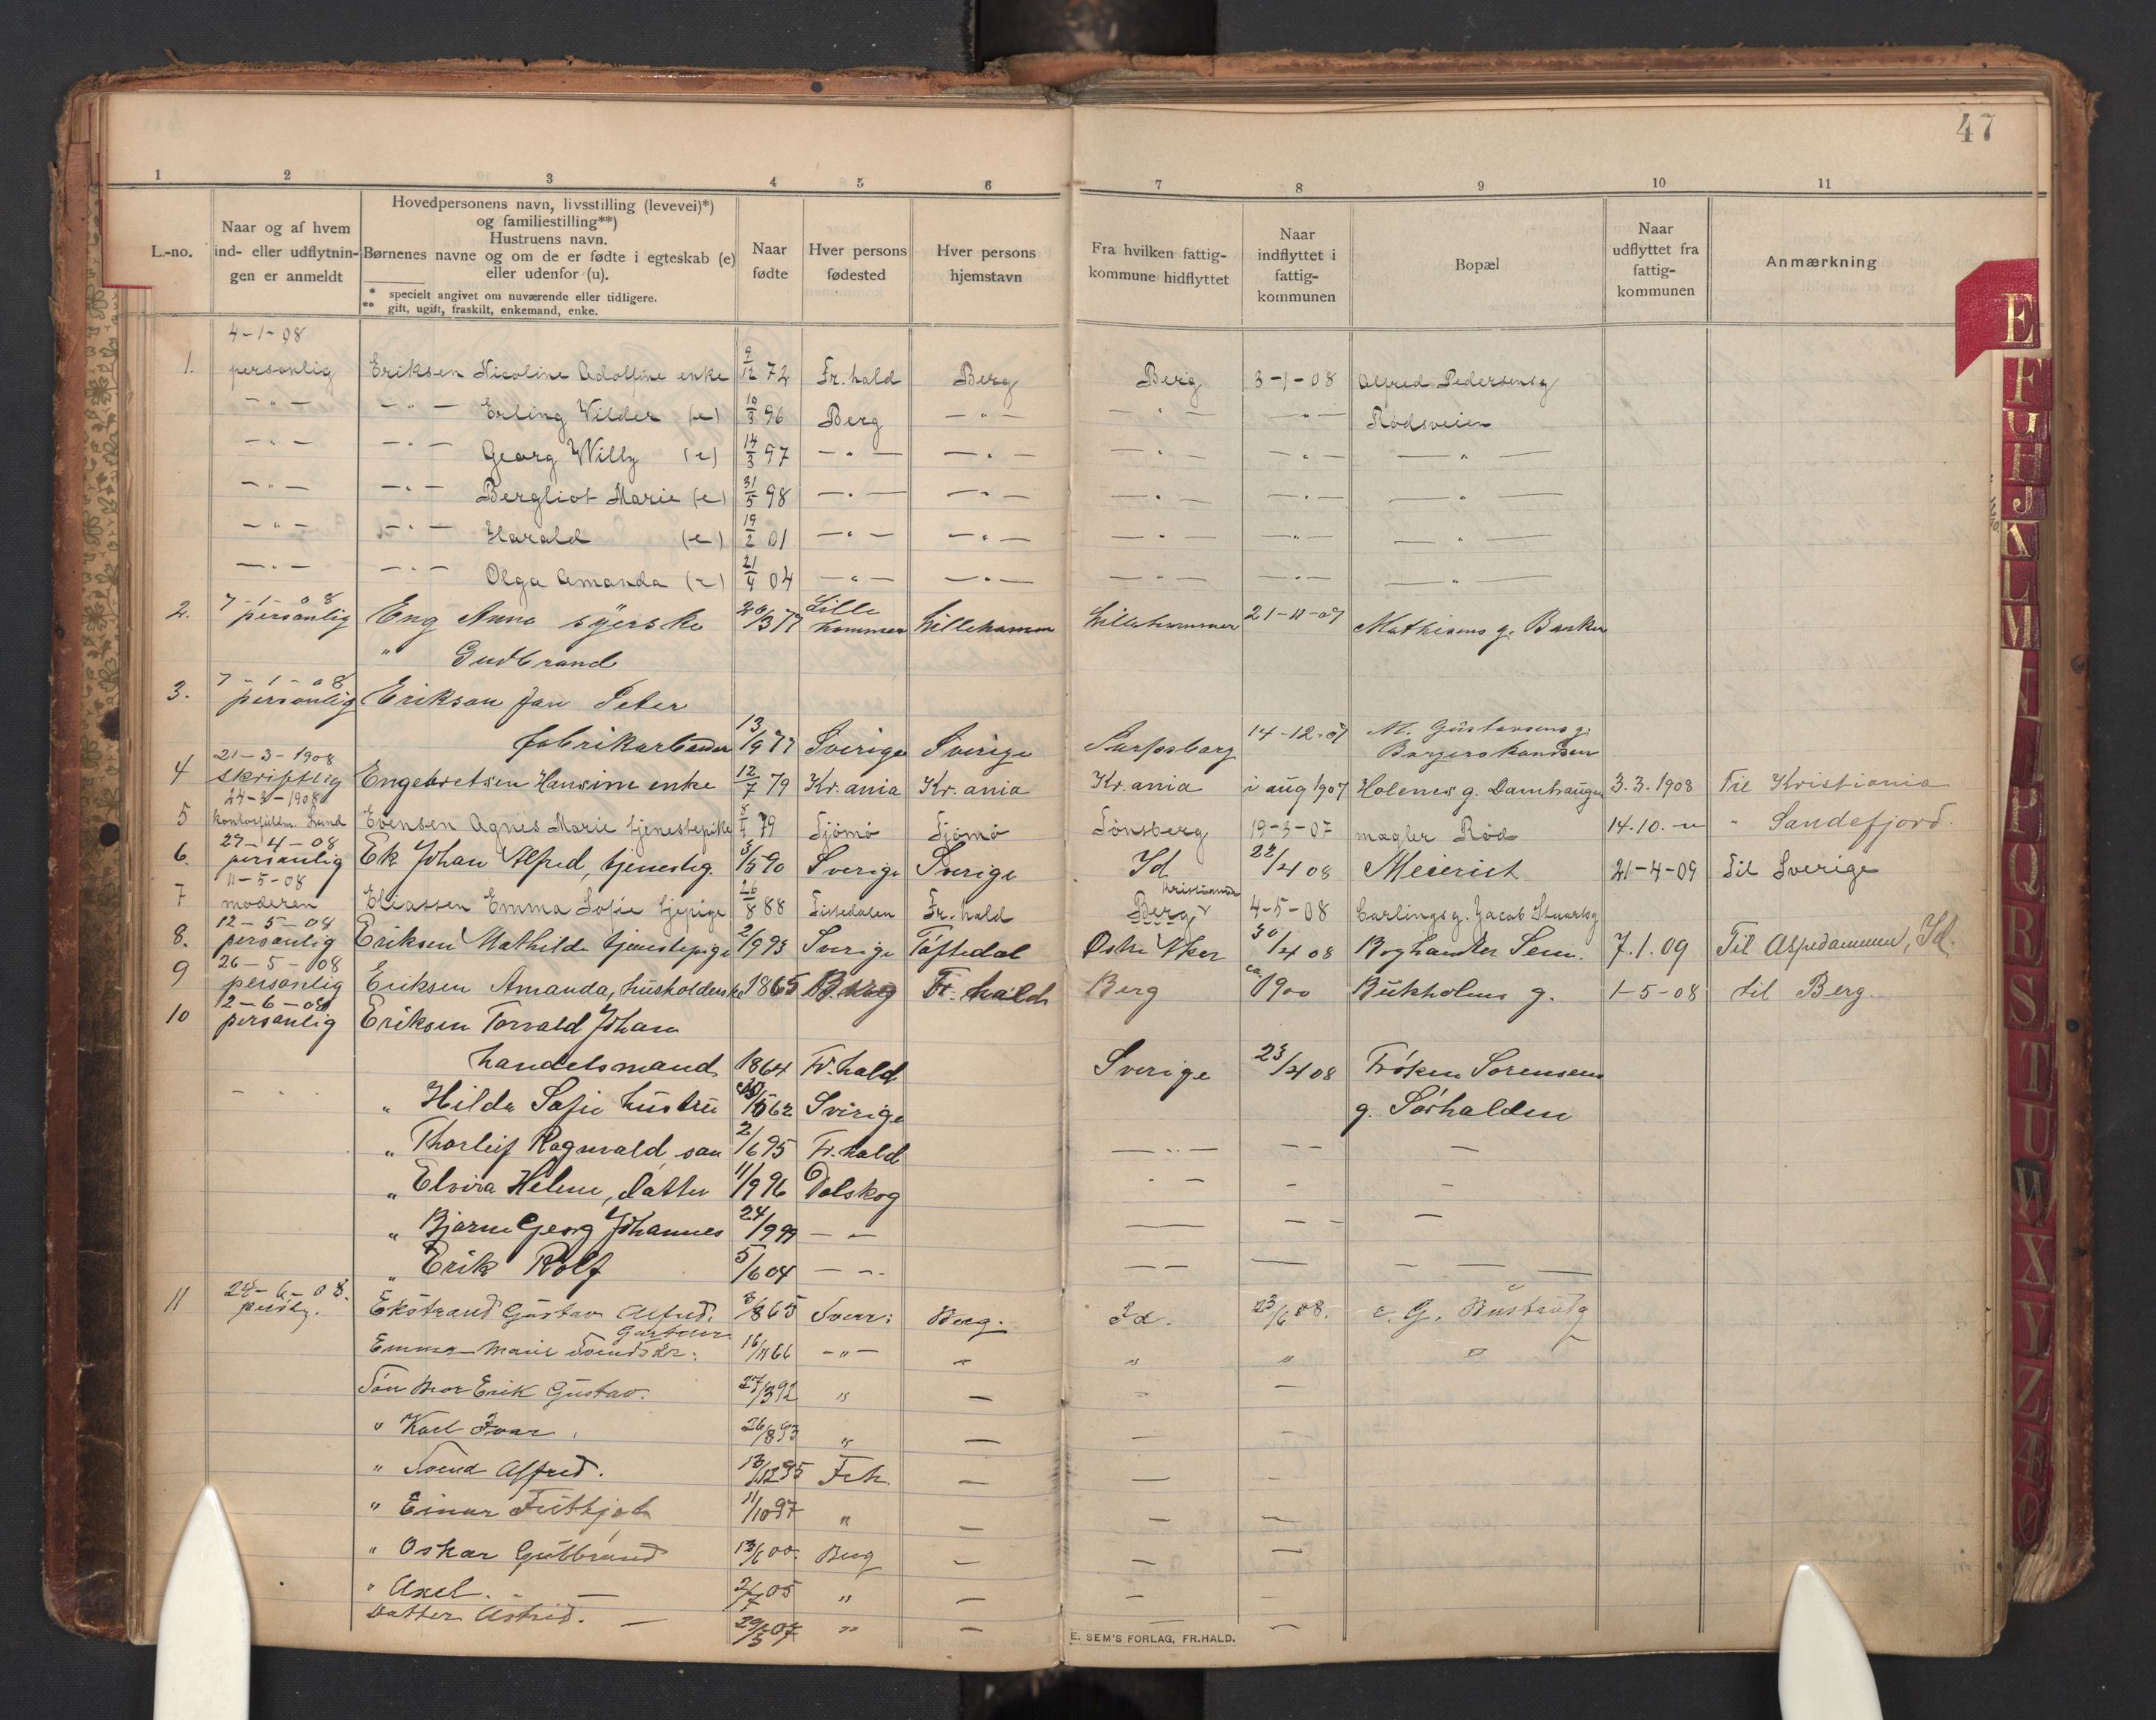 47
1 2 3 4 5 6 7 8 9 10 11
L.-no.
Naar og af hvem ind- eller udflytnin- gen er anmeldt
Hovedpersonens navn, livsstilling (levevei)*)
og familiestilling**)
Hustruens navn.
Børnenes navne og om de er fødte i egteskab (e)
eller udenfor (u).
* specielt angivet om nuværende eller tidligere.
** gift, ugift, fraskilt, enkemand, enke.
Naar fødte
Hver persons fødested
Hver persons hjemstavn
Fra hvilken fattig- kommune hidflyttet
Naar indflyttet i fattig- kommunen
Bopæl
Naar udflyttet fra fattig- kommunen
Anmærkning
4-1-08
1. personlig Eriksen Nicoline Adolfine enke 9/12 72 Fr.hald Berg Berg 3-1-08 Alfred Pedersensg
— " — — " — Erling Vilder (e) 10/3 96 Berg — " — — " — — " — Rødsveien
— " — — " — Georg Willy (e) 14/3 97 — " — — " — — " — — " — — " —
— " — — " — Bergliot Marie (e) 31/5 98 — " — — " — — " — — " — — " —
— " — — " — Harald (e) 19/2 01 — " — — " — — " — — " — — " —
— " — — " — Olga Amanda (e) 21/4 04 — " — — " — — " — — " — — " —
7-1-08
2. personlig Eng Anna syerske 20/3 77 Lille hammer Lillehammer Lillehammer 21-11-07 Mathisens g. Banken
" Gudbrand
7-1-08
3. personlig Erikson Jan Peter
fabrikarbeider 13/9 77 Sverige Sverige Sarpsborg 14-12-07 M. Gustavsens g.
21-3-1908
4 skriftlig Engebretsen Hansine enke 12/7 79 Kr.ania Kr.ania Kr.ania i aug 1907 Holenes g. Damhaugen 3.3.1908 Til Kristiania
24-3-1908
5 Lund Evensen Agnes Marie tjenestepike 8/4 79 Tjömö Tjömö Tönsberg 19-3-07 mægler Röd 14.10.-" " Sandefjord.
27-4-08
6. personlig Ek Johan Alfred, tjenestg. 3/5 90 Sverige Sverige Id 22/4 08 Meieriet 21-4-09 Til Sverige
11-5-08
7 moderen Eliassen Emma Sofie tjepige 26/8 88 Tistedalen Fr.hald Berg Kristiania 4-5-08 Carlingsg. Jacob Stuartsg
12-5-08
8. personlig Eriksen Mathilde tjenestepige 2/9 93 Sverige Töftedal Østre Aker 30/4 08 Boghandler Sem. 7.1.09 Til Aspedammen, Id.
26-5-08
9 personlig Eriksen Amanda, husholderske 1865 Berg Fr.hald Berg ca 1900 Bukholms g. 1-5-08 til Berg
12-6-08
10 personlig Eriksen Torvald Johan
handelsmand 1864 Fr.hald Sverige 23/4 08 Fröken Sorensens
" Hilda Sofie hustru 62 Sverige g. Sörhalden
" Thorleif Ragnvald, søn 2/6 95 Fr.hald — " — — — —
" Elvira Helene, datter 11/9 96 Dalskog
" Bjarne Georg Johannes 24/9 99 — —
" Erik Rolf 5/6 04 — —
24-6-08.
11 pers.lg. Ekstrand Gustav Alfred. 3/8 65 Sverr: Berg. Id. 23/6 08.
Gartner
Emma Marie 16/11 66 — " — " " "
Sön Thor Erik Gustav. 27/3 92 " —
" Karl Ivar 26/8 93 " —
" Svend Alfred. 13/12 95 Frh. —
" Einar Fritkjof 11/10 97 " —
" Oskar Gulbrand 13/6 00. Berg —
" Axel. — 2/7 05 " —
Datter Astrid. — 29/5 07 " —
E. SEM'S FORLAG, FR.HALD.
E
F
G
H
J
K
L
M
N
O
P
Q
R
S
T
U
W
X
Y
Z
Æ
Ø